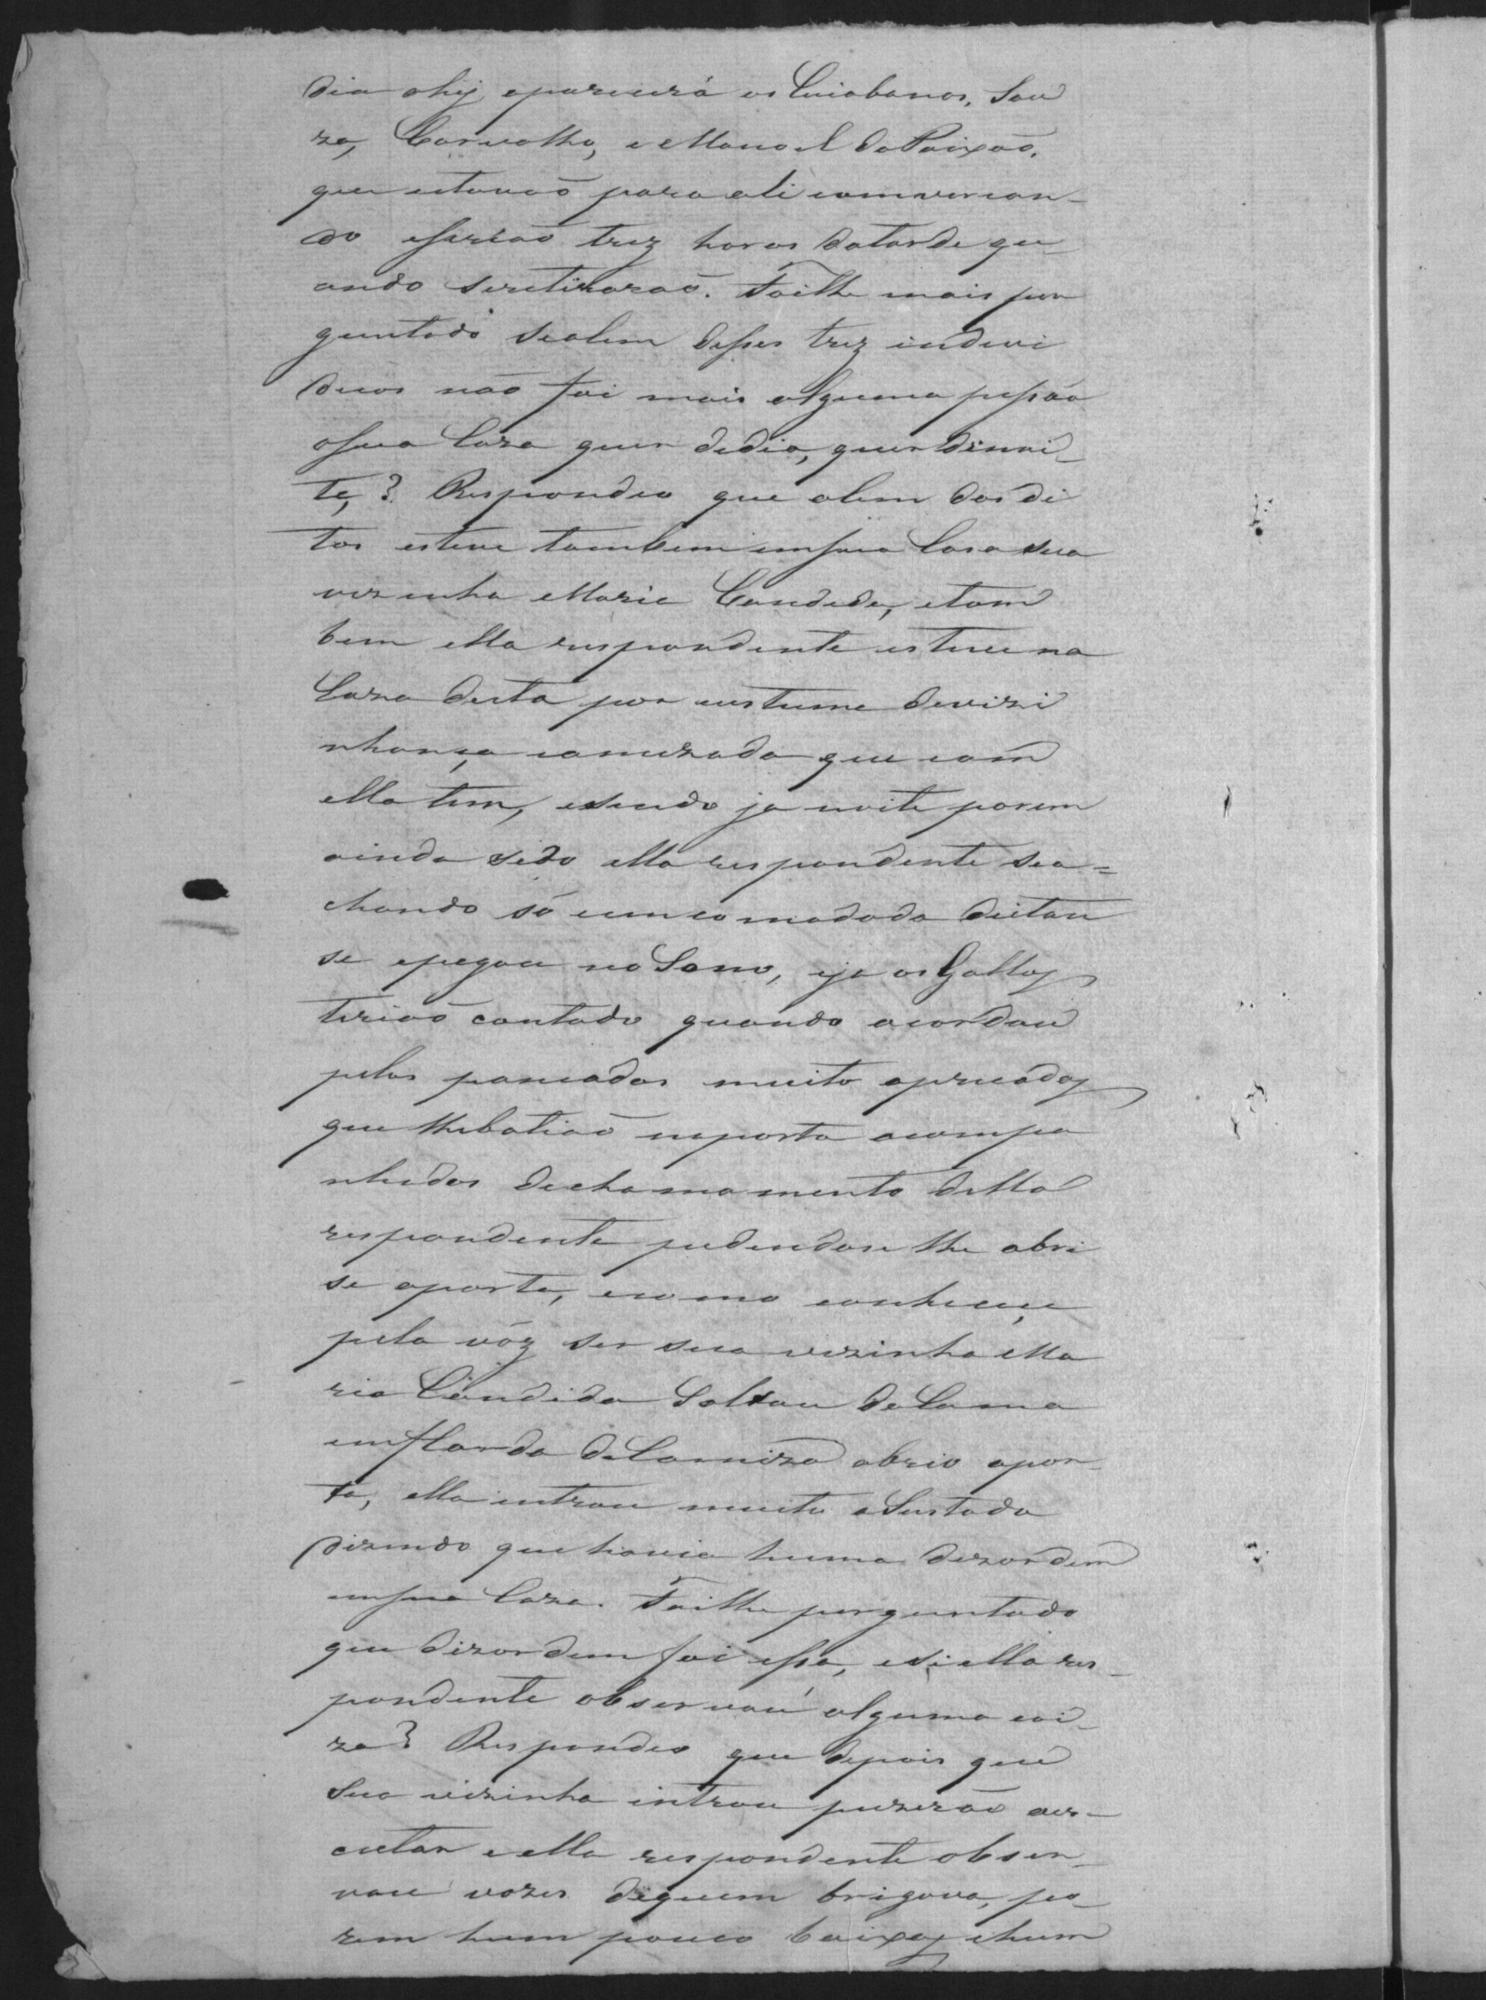 dia ahy aparicerá os Cuiabanos, Sou
za, Carvalho, e Manoel da Paixaõ,
que estavaõ para ali comverçan-
do e serião trez horas da tarde qu-
ando seretiraraõ. Foi lhe mais per
guntado sealem desses trez indevi
duos não foi mais alguma pessôa
a sua Caza quer dedia, quer dinoi-
te,? Respondeo que alem dos di
tos esteve tambem em sua Casa sua
vezinha Maria Candida, etam
bem ella respondente esteve na
Caza desta por custume de vizi
nhança e amizada que com
ella tem, e sendo ja noite porem
ainda sedo ella respondente sea=
chando só e emcomodada deitou
se epegou no Sono, eja os Gallos
teriaõ cantado quando acordou
pelas pancadas muito apreçadas
que lhe batiaõ na porta acompa
nhadas dechamamento della
respondente pedindose lhe abri
se aporta, e como conheceçe
pela vóz ser sua vezinha Ma
ria Cândida Saltou da Cama
em flauda de Camiza abrio apor-
ta, ella entrou muito a Sustada
dizendo que havia huma dezordem
em sua Caza. Foi lhe perguntado
que dizordem foi essa, e si ella res-
pondente observou alguma coi-
za? Respondeo que depois que
sua vizinha entrou puzeraõ aes-
cutar e ella respondente obser-
vou vozes de quem brigava, po-
rem hum pouco baixas, e hum